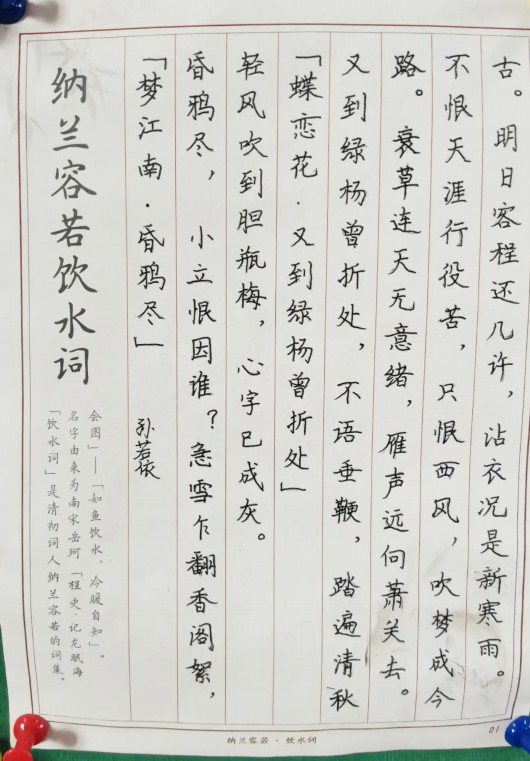 纳兰容若饮水词
「饮水词」是清初词人纳兰容若的词集。
名字由来为南宋岳珂「桯史·记龙眠海
会图」——「如鱼饮水，冷暖自知」。
「梦江南·昏鸦尽」
孙若依
昏鸦尽，小立恨因谁？急雪乍翻香阁絮，
轻风吹到胆瓶梅，心字已成灰。
「蝶恋花·又到绿杨曾折处」
又到绿杨曾折处，不语垂鞭，踏遍清秋
路。衰草连天无意绪，雁声远向萧关去。
不恨天涯行役苦，只恨西风，吹梦成今
古。明日客程还几许，沾衣况是新寒雨。
纳兰容若·饮水词
01